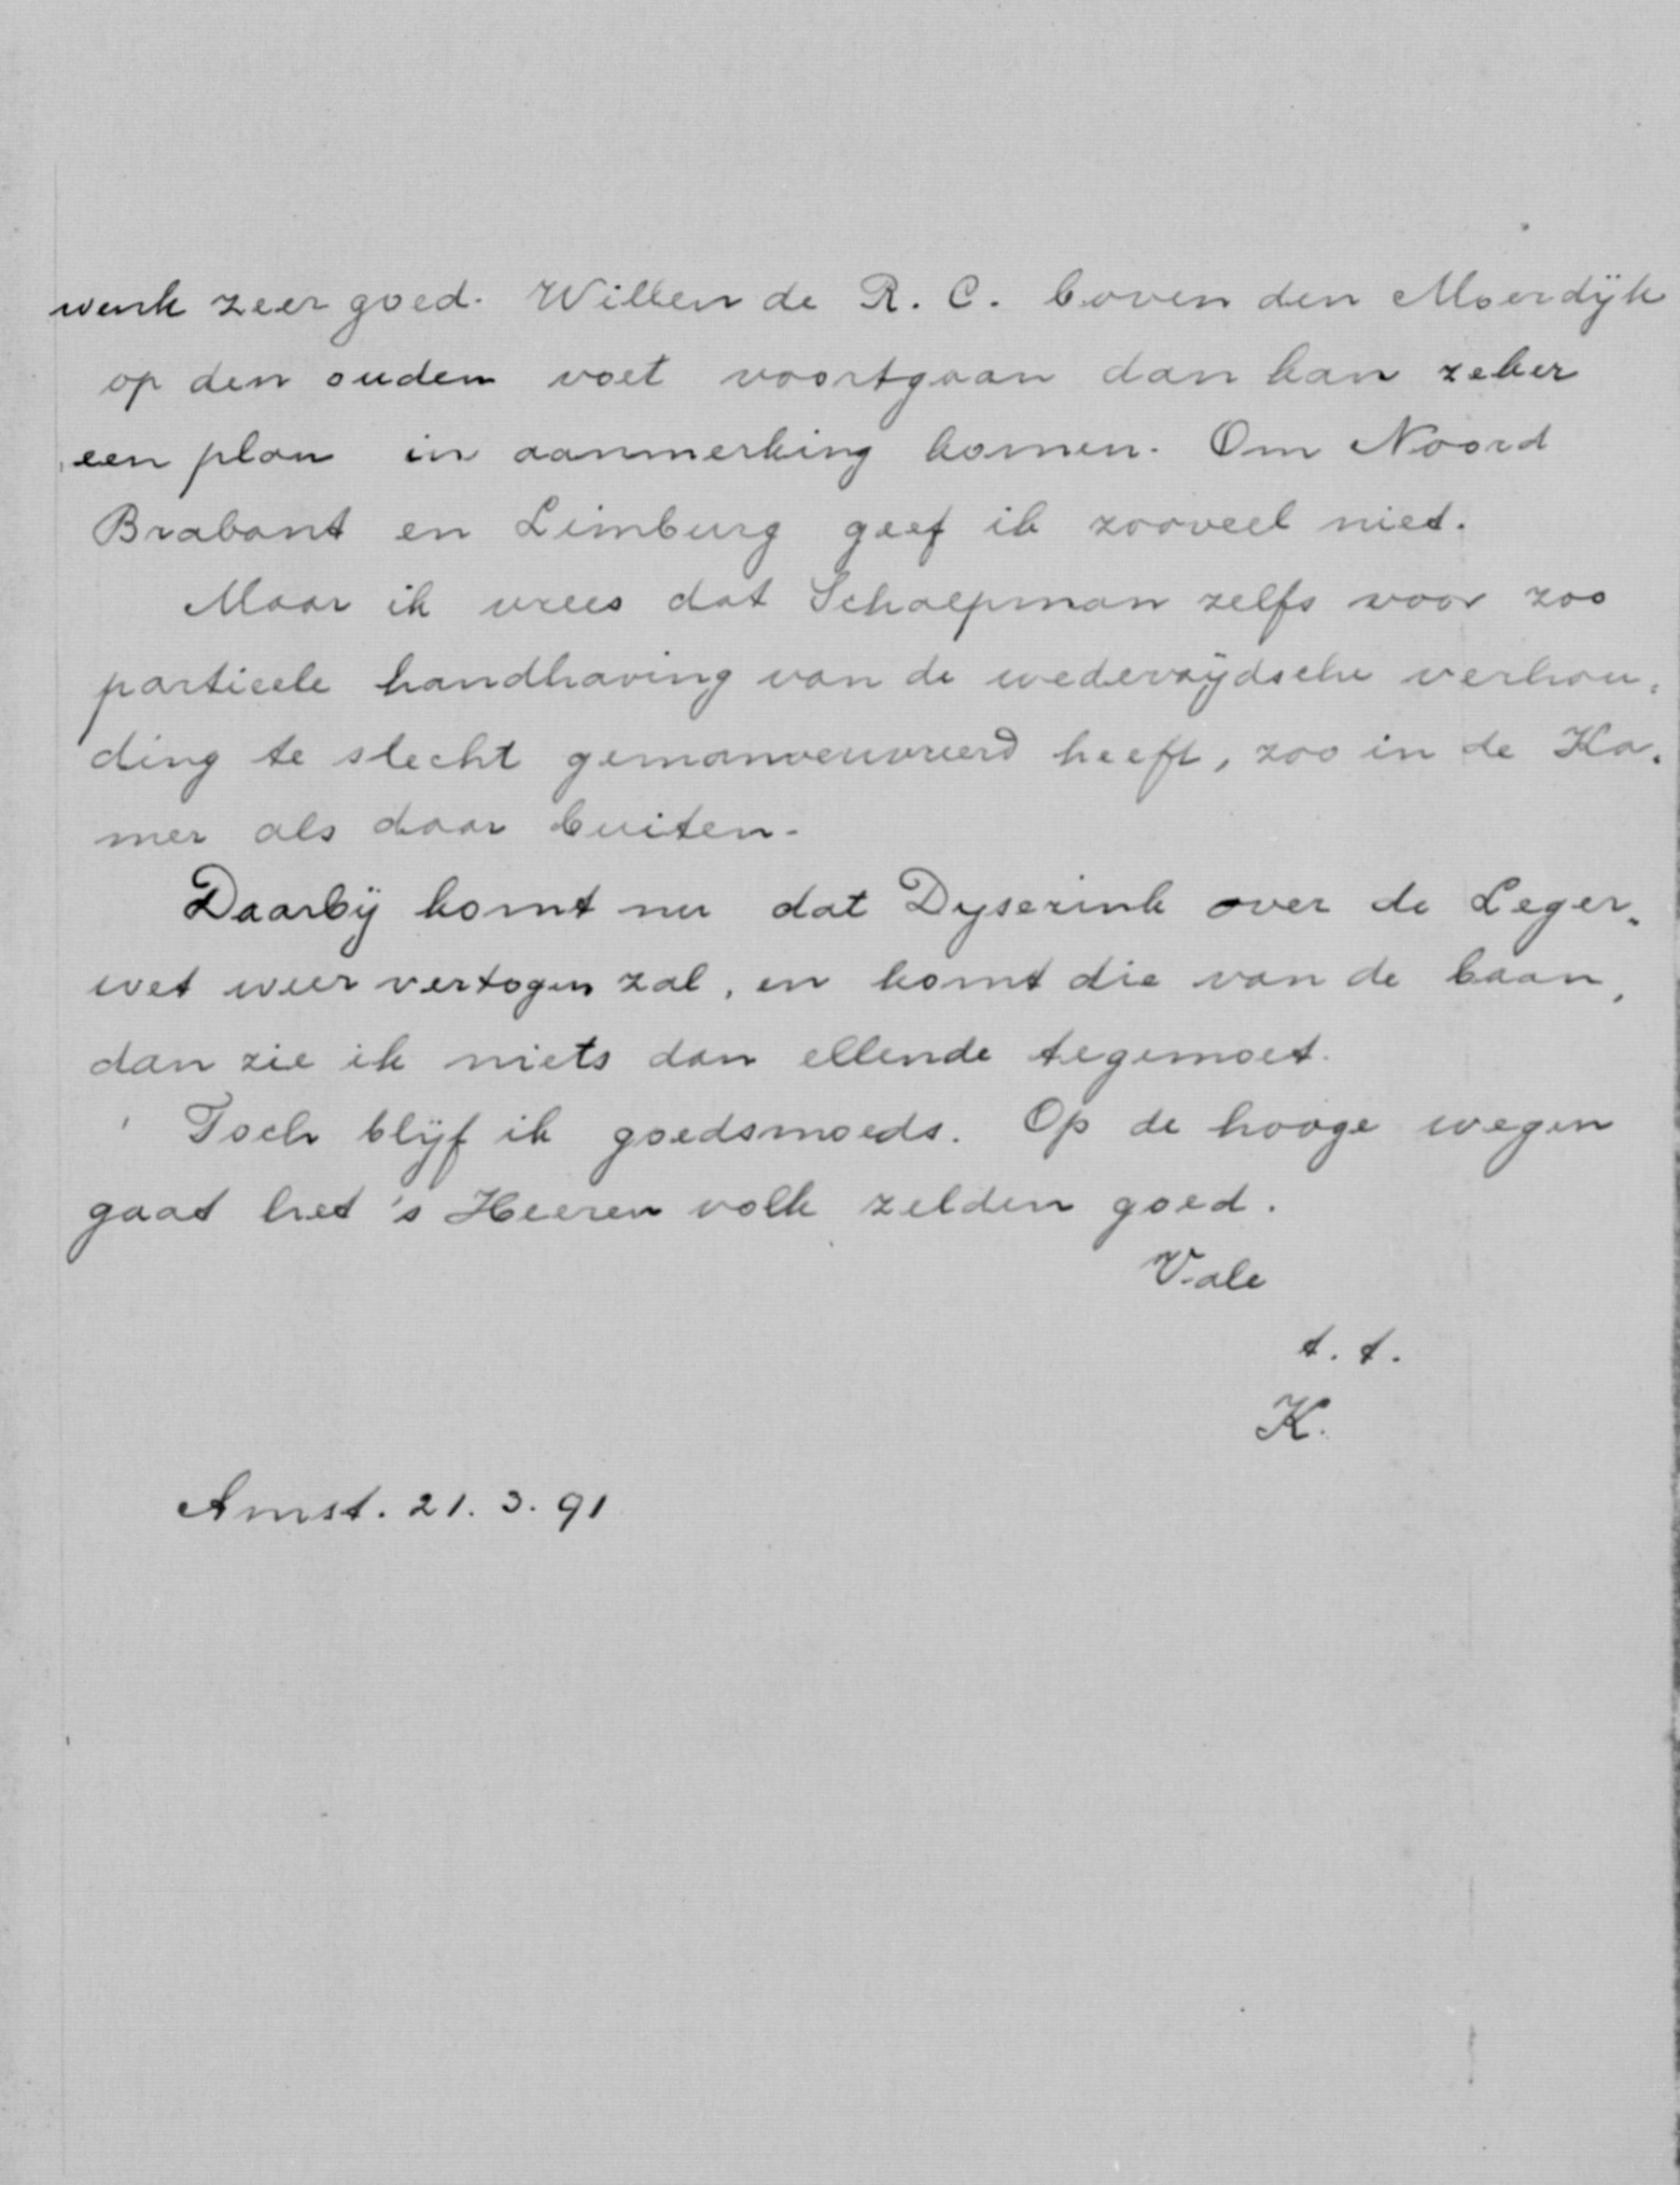 wenk zeer goed. Willen de R. C. boven den Moerdijk
op den ouden voet voortgaan dan kan zeker
een plan in aanmerking komen. Om Noord
Brabant en Limburg geef ik zooveel niet.
Maar ik vrees dat Schaepman zelfs voor zoo
partieele handhaving van de wederzijdsche verhou-
ding te slecht gemanoeuvreerd heeft, zoo in de Ka-
mer als daar buiten.
Daarbij komt nu dat Dyserink over de Leger-
wet weer vertogen zal, en komt die van de baan,
dan zie ik niets dan ellende tegemoet.
Toch blijf ik goedsmoeds. Op de hooge wegen
gaat het 's Heeren volk zelden goed.
Vale
t. t.
K.
Amst. 21. 3. 91